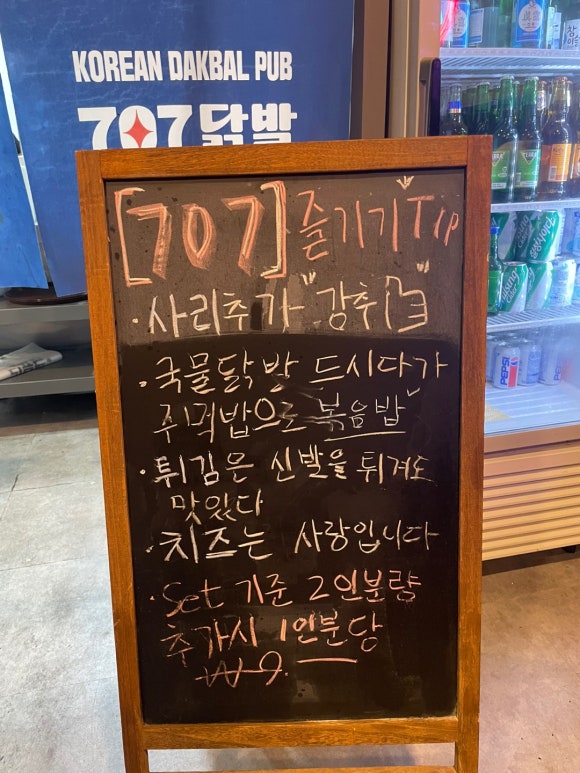 KOREAN DAKBAL PUB
707닭발
[707] 즐기기 Tip
· 사리추가 "강추"
· 국물닭발 드시다가
주먹밥으로 볶음밥
· 튀김은 신발을 튀겨도
맛있다
· 치즈는 사랑입니다
· Set 기준 2인분량
추가시 1인분당
₩9.
PEPSI